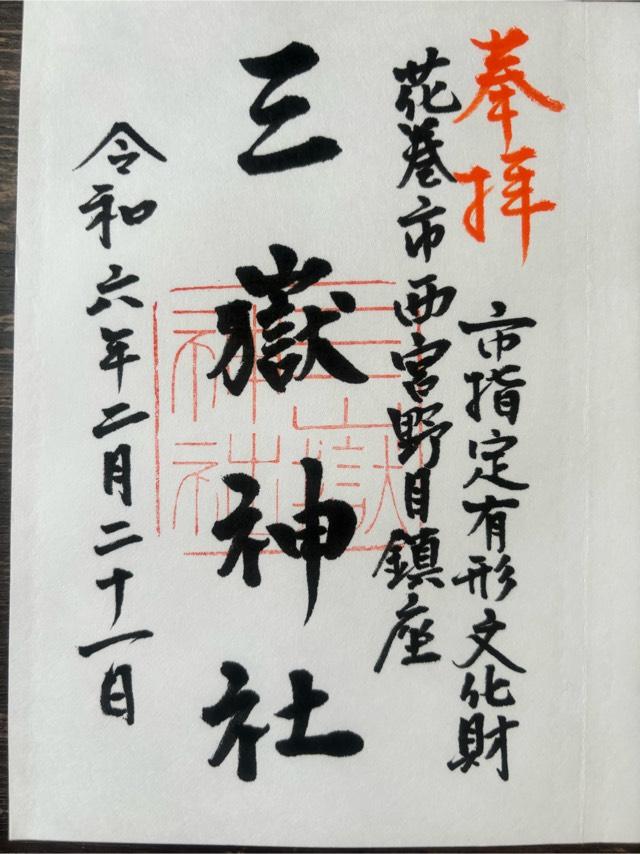 奉拝
市指定有形文化財
花巻市西宮野目鎮座
三嶽神社
三嶽
神社
令和六年二月二十一日